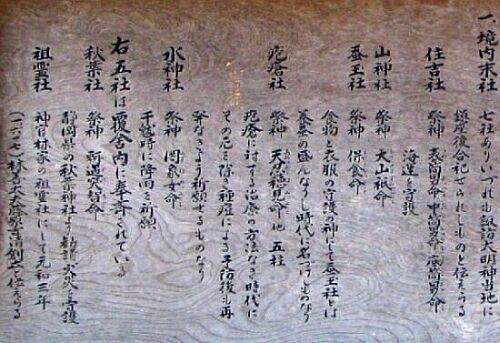 一、境内末社
七社ありいづれも鍛治大明神当地に
鎮座後合祀せられしものと伝えらる
住吉社
祭神 表筒男命 中筒男命 底筒男命
海運を守護
山神社
祭神 大山祇命
蚕玉社
祭神 保食命
食物と衣服の守護の神にして蚕玉社とは
養蚕の盛んなりし時代に名づけしものなり
疱瘡社
祭神 他 五柱
疱瘡に対する治療の方法なき時代に
その厄を除き種痘による予防後も再
発なきよう祈願せるものなり
水神社
祭神 罔象女命
干魃時に降雨を祈願
右五社は覆舎内に奉斎されている
秋葉社
祭神 軻遇突智命
静岡県の秋葉神社より勧請 火災を守護
祖霊社
神官村家の祖霊社にして元和三年
（一六一七）村 創立と伝えらる